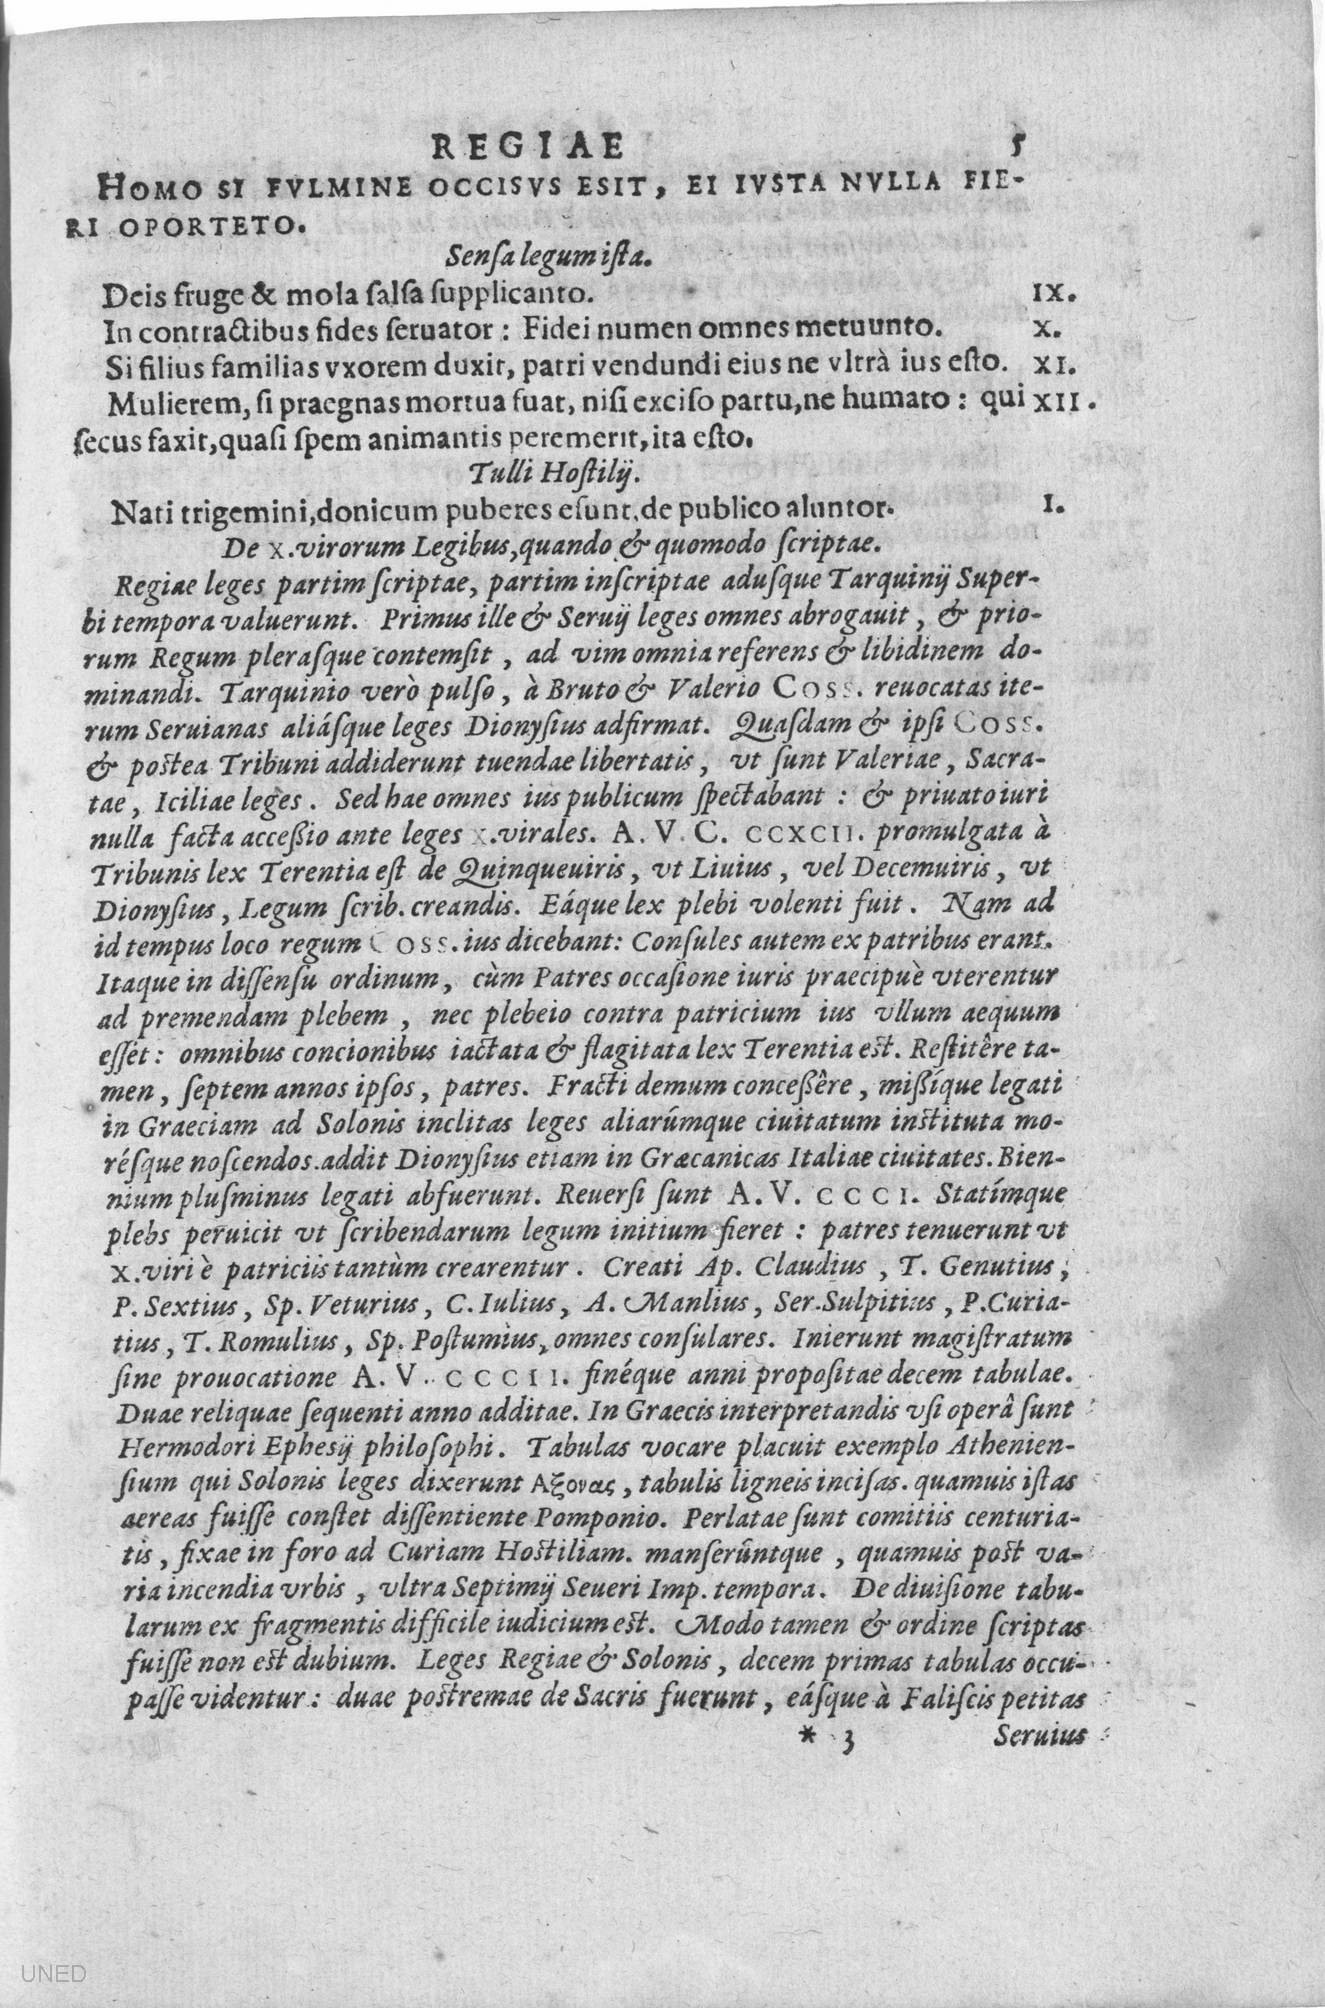 REGIAE 5
HOMO SI FVLMINE OCCISVS ESIT, EI IVSTA NVLLA FIE-
RI OPORTETO.
Senſa legum iſta.
Deis fruge & mola ſalſa ſupplicanto. IX.
In contractibus fides ſeruator: Fidei numen omnes metuunto. X.
Si filius familias vxorem duxit, patri vendundi eius ne vltrà ius eſto. XI.
Mulierem, ſi praegnas mortua fuat, niſi exciſo partu, ne humato: qui XII.
ſecus faxit, quaſi ſpem animantis peremerit, ita eſto.
Tulli Hoſtilij.
Nati trigemini, donicum puberes eſunt, de publico aluntor. I.
De X.virorum Legibus, quando & quomodo ſcriptae.
Regiae leges partim ſcriptae, partim inſcriptae aduſque Tarquinij Super-
bi tempora valuerunt. Primus ille & Seruij leges omnes abrogauit, & prio-
rum Regum pleraſque contemſit, ad vim omnia referens & libidinem do-
minandi. Tarquinio verò pulſo, à Bruto & Valerio COSS. reuocatas ite-
rum Seruianas aliáſque leges Dionyſius adfirmat. Quaſdam & ipſi COSS.
& poſtea Tribuni addiderunt tuendae libertatis, vt ſunt Valeriae, Sacra-
tae, Iciliae leges. Sed hae omnes ius publicum ſpectabant: & priuato iuri
nulla facta acceßio ante leges X.virales. A. V. C. CCXCII. promulgata à
Tribunis lex Terentia eſt de Quinqueuiris, vt Liuius, vel Decemuiris, vt
Dionyſius, Legum ſcrib. creandis. Eáque lex plebi volenti fuit. Nam ad
id tempus loco regum COSS. ius dicebant: Conſules autem ex patribus erant.
Itaque in diſſenſu ordinum, cùm Patres occaſione iuris praecipuè vterentur
ad premendam plebem, nec plebeio contra patricium ius vllum aequum
eſſet: omnibus concionibus iactata & flagitata lex Terentia eſt. Reſtitêre ta-
men, ſeptem annos ipſos, patres. Fracti demum conceßêre, mißíque legati
in Graeciam ad Solonis inclitas leges aliarúmque ciuitatum inſtituta mo-
réſque noſcendos. addit Dionyſius etiam in Græcanicas Italiae ciuitates. Bien-
nium pluſminus legati abfuerunt. Reuerſi ſunt A. V. CCCI. Statímque
plebs peruicit vt ſcribendarum legum initium fieret: patres tenuerunt vt
X.viri è patriciis tantùm crearentur. Creati Ap. Claudius, T. Genutius,
P. Sextius, Sp. Veturius, C. Iulius, A. Manlius, Ser. Sulpitius, P. Curia-
tius, T. Romulius, Sp. Poſtumius, omnes conſulares. Inierunt magiſtratum
ſine prouocatione A. V. CCCII. finéque anni propoſitae decem tabulae.
Duae reliquae ſequenti anno additae. In Graecis interpretandis vſi operâ ſunt
Hermodori Epheſij philoſophi. Tabulas vocare placuit exemplo Athenien-
ſium qui Solonis leges dixerunt Αξονας, tabulis ligneis inciſas. quamuis iſtas
aereas fuiſſe conſtet diſſentiente Pomponio. Perlatae ſunt comitiis centuria-
tis, fixae in foro ad Curiam Hoſtiliam. manſerûntque, quamuis poſt va-
ria incendia vrbis, vltra Septimij Seueri Imp. tempora. De diuiſione tabu-
larum ex fragmentis difficile iudicium eſt. Modo tamen & ordine ſcriptas
fuiſſe non eſt dubium. Leges Regiae & Solonis, decem primas tabulas occu-
paſſe videntur: duae poſtremae de Sacris fuerunt, eáſque à Faliſcis petitas
* 3 Seruius
UNED